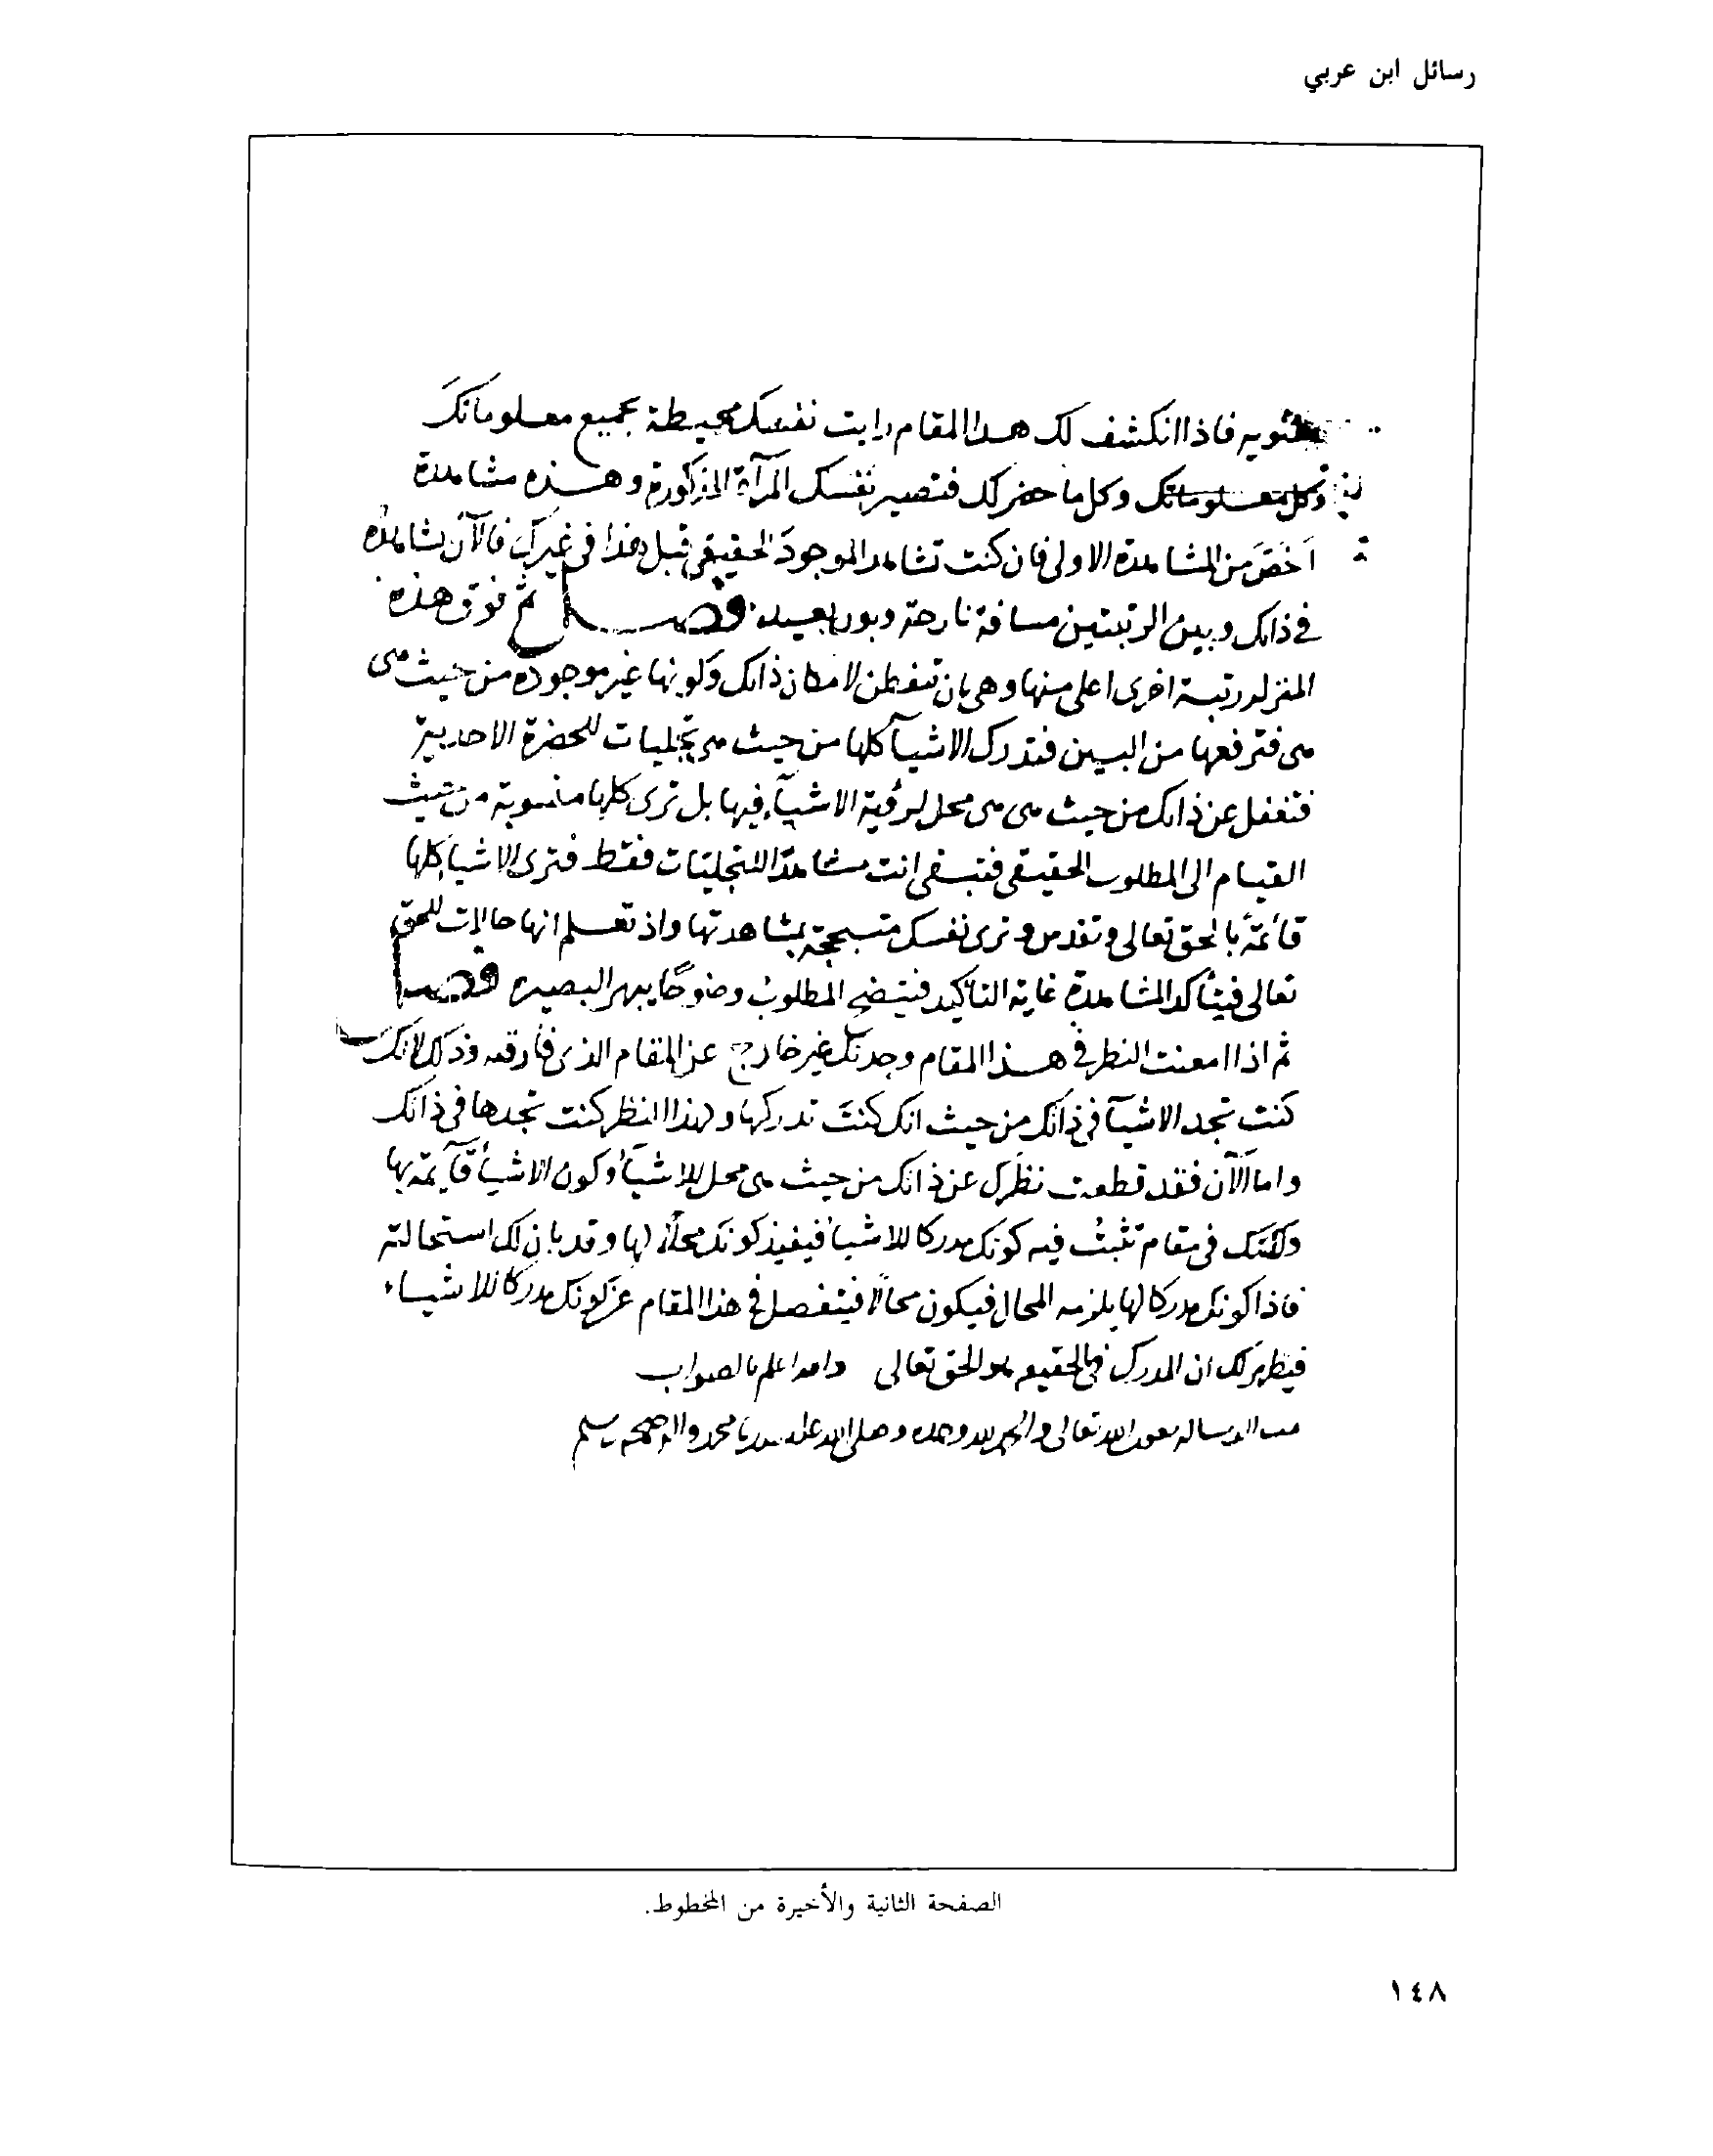 رسائل ابن عربي
فاذا انكشف لك هذا المقام رايت نفسك محيطة بجميع معلوماتك
وكل معلوماتك وكل ما حضر لك فتصير نفسك المرآة المذكورة وهذه مشاهدة
اخص من المشاهدة الاولى فان كنت تشاهد الموجود الحقيقى قبل هذا فى غيرك فالآن تشاهده
فى ذاتك وبين الرتبتين مسافة نازحة وبون بعيد فصل ثم فوق هذه
المنزله رتبة اخرى اعلى منها وهى بان تتفطن لامكان ذاتك وكونها غير موجوده من حيث هى
هى فترفعها من البين فتدرك الاشيآ كلها من حيث هى تجليات للحضرة الاحدية
فتغفل عن ذاتك من حيث هى هى محل لرؤية الاشيآء فيها بل ترى كلها منسوبة من حيث
القيام الى المطلوب الحقيقى فتبقى انت مشاهدًا للتجليات فقط فترى الاشيآ كلها
قائمة بالحق تعالى وتقدس وترى نفسك مبتهجة بمشاهدتها واذ تعلم انها حالات للحق
تعالى فيتأكد المشاهدة غاية التأكيد فيتضح المطلوب وضوحًا يبهر البصيره فصل
ثم اذا امعنت النظر فى هذا المقام وجدتك غير خارج عن المقام الذى فارقته وذلك لانك
كنت تجد الاشيآ فى ذاتك من حيث انك كنت تدركها وبهذا النظر كنت تجدها فى ذاتك
واما الآن فقد قطعت نظرك عن ذاتك من حيث هى محل للاشيآ وكون الاشيآ قآيمة بها
ولكنك فى مقام تثبت فيه كونك مدركا للاشيا كونك محلا لها وقد بان لك استحالته
فاذا كونك مدركا لها يلزمه المحال فيكون محالًا فينفصل فى هذا المقام عن كونك مدركا للاشياء
فيظهر لك ان المدرك فى الحقيقه هو الحق تعالى والله اعلم بالصواب
تمت الرسالة بعون الله تعالى والحمد لله وحده وصلى الله على سيدنا محمد واله وصحبه وسلم
الصفحة الثانية والأخيرة من المخطوط.
١٤٨